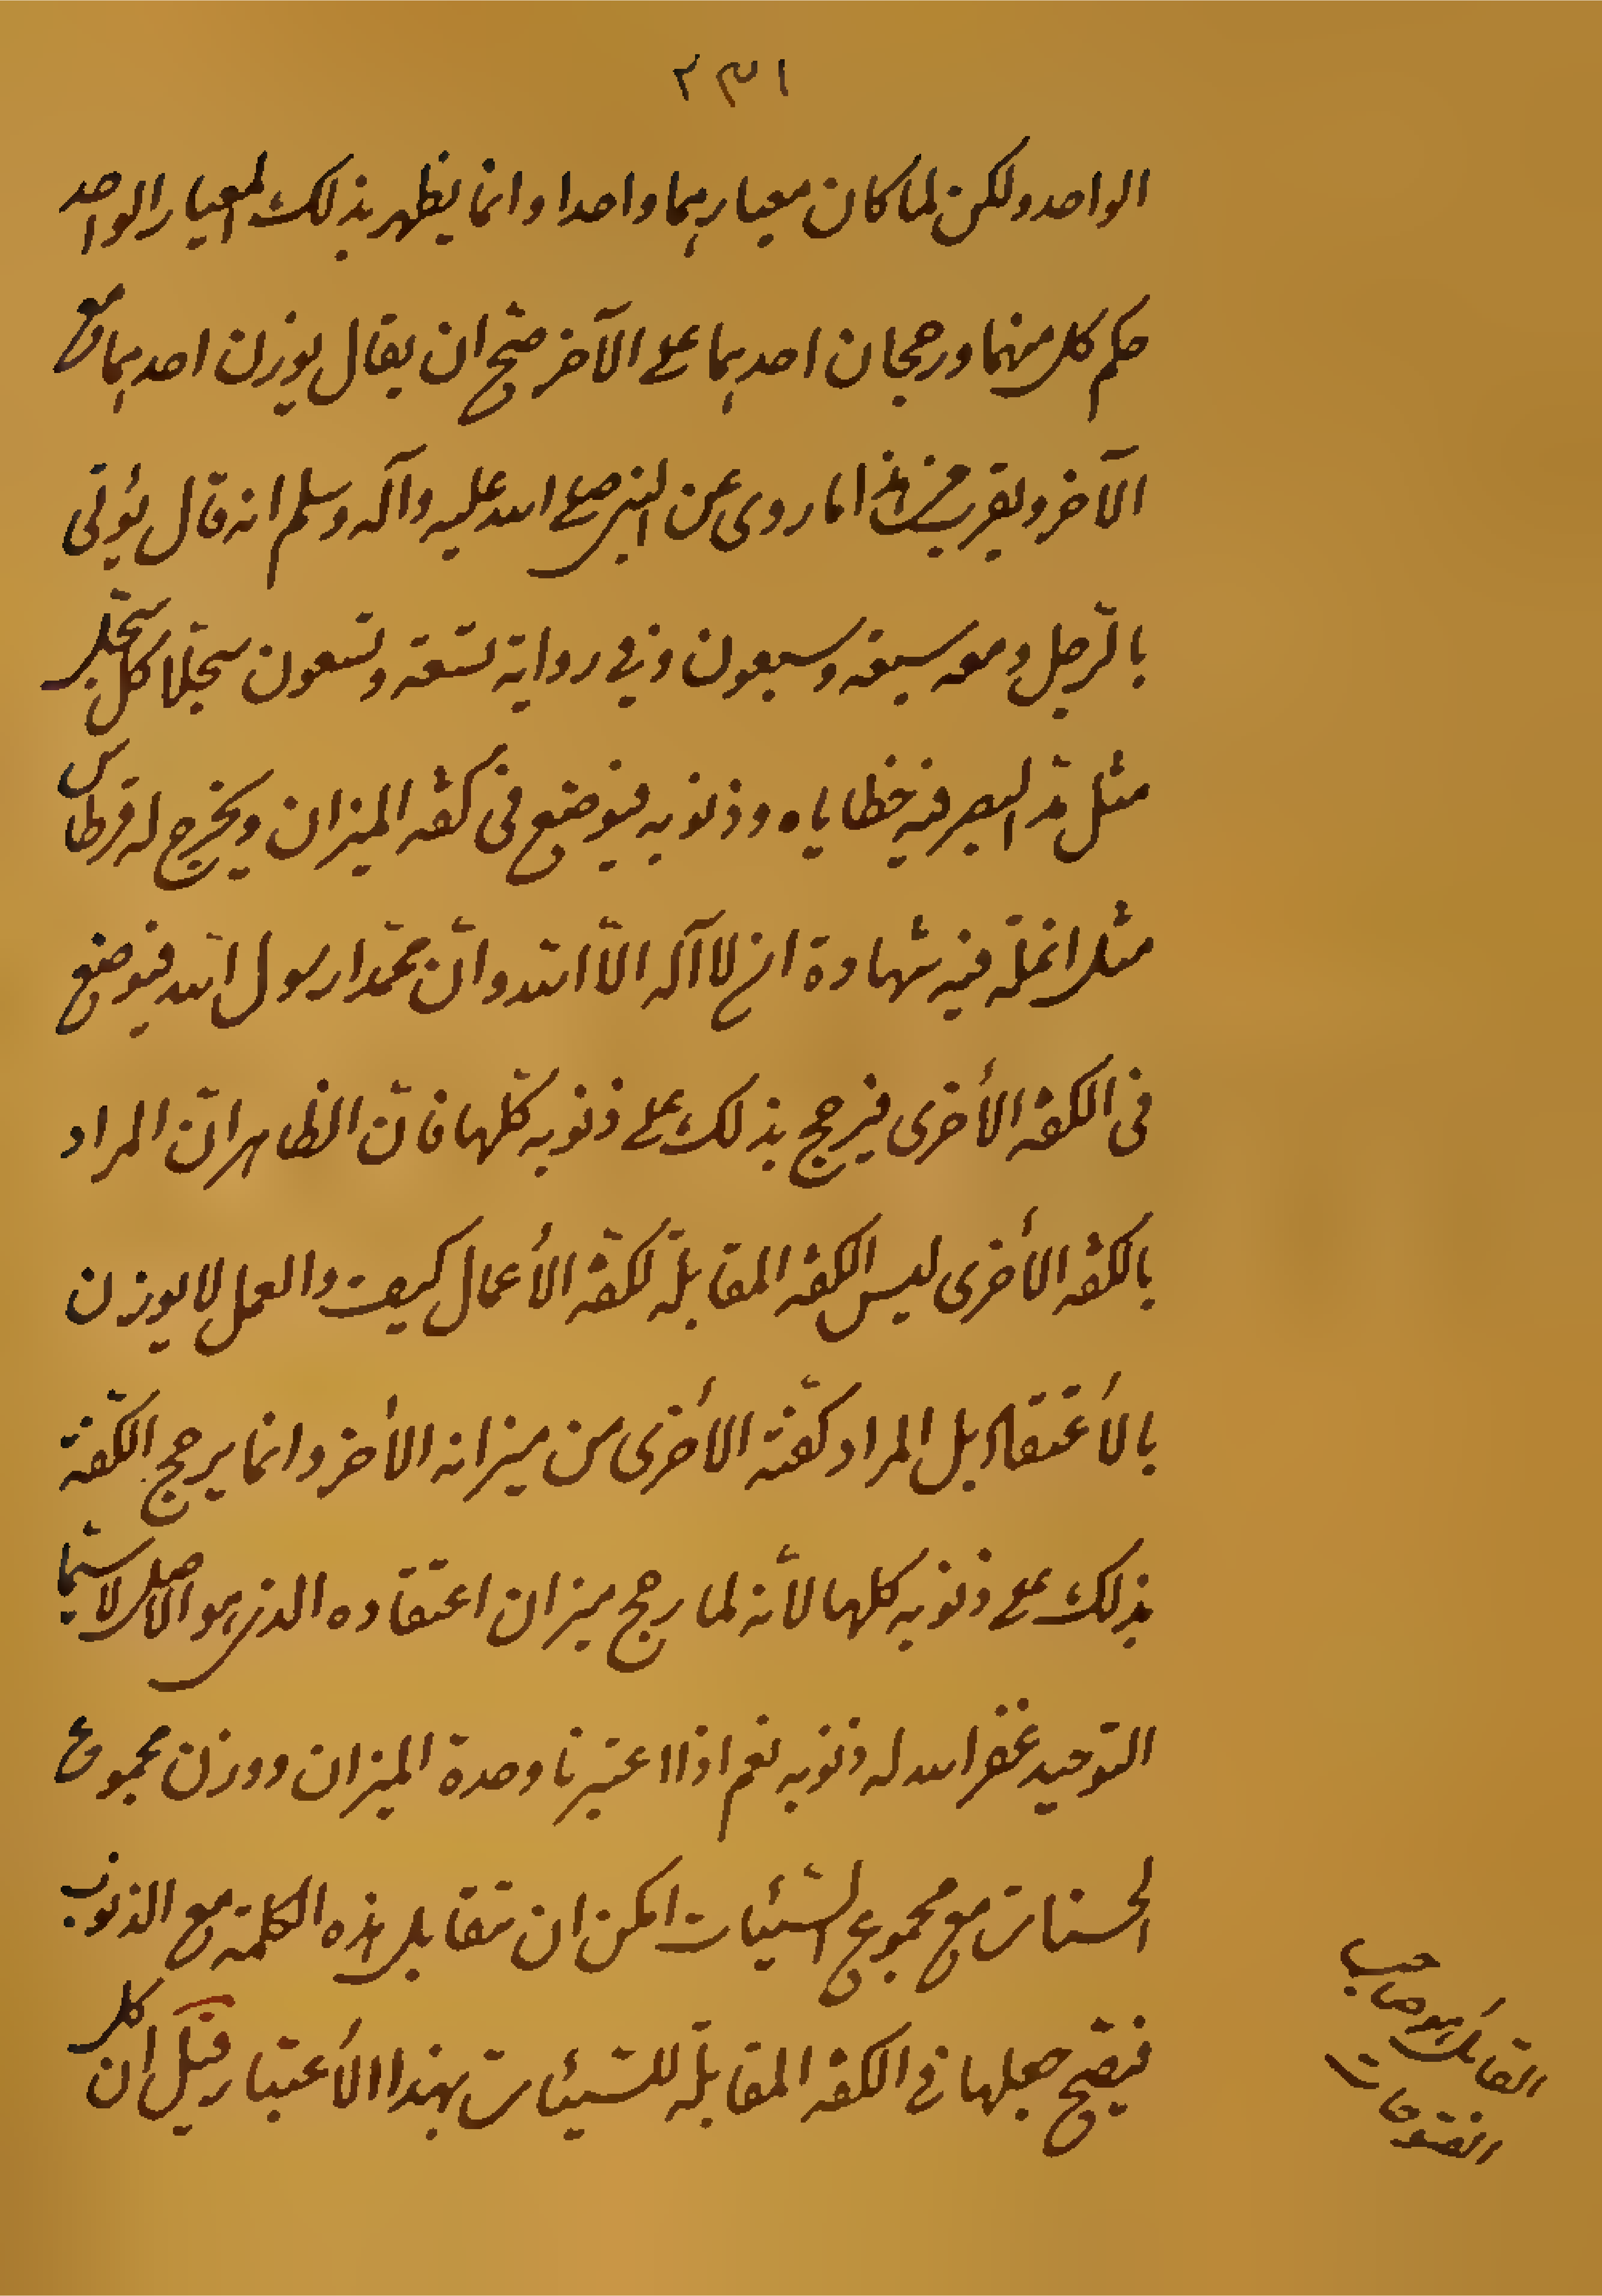 ١٣٢
الواحد ولكن لما كان معيارهما واحدا وانما يظهر بذلك المعيار الواحد
حكم كل منهما ورجحان احدهما على الآخر صحّ ان يقال يوزن احدهما مع
الآخر ويقرب من هذا ما روى عن النبي صلى الله عليه وآله وسلم انه قال يؤتى
بالرّجل ومعه سبعة وسبعون وفي رواية تسعة وتسعون سجلّا كل سجلّ
مثل مدّ البصر فيه خطاياه وذنوبه فيوضع في كفّة الميزان ويخرج له قرطاس
مثل انملة فيه شهادة ان لا آله الّا الله وانّ محمّدا رسول الله فيوضع
في الكفة الأخرى فيرجح بذلك على ذنوبه كلّها فانّ الظاهر انّ المراد
بالكفة الأخرى ليس الكفة المقابلة لكفّة الأعمال كيف والعمل لا يوزن
بالأعتقاد بل المراد كفّته الأخرى من ميزانه الأخر وانما يرجح الكفّة
بذلك على ذنوبه كلها لأنه لما رجح ميزان اعتقاده الذي هو الاصل لا سيّما
التوحيد غفر الله له ذنوبه نعم اذا اعتبرنا وحدة الميزان ووزن مجموع
الحسنات مع مجموع السّيّئات امكن ان تقابل هذه الكلمة مع الذنوب
فيصّح جعلها في الكفة المقابلة للسّيئات بهذا الأعتبار قيل ان كل
القائل هو صاحب
الفتوحات